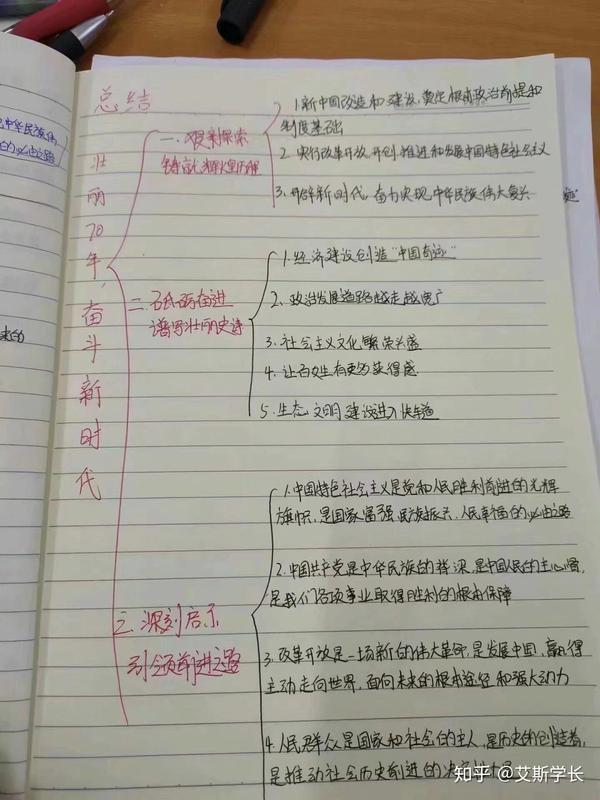 中华民族伟
的必由之路
来的
总结
壮丽70年,奋斗新时代
一、艰辛探索
铸就辉煌历程
1.新中国改造和建设,奠定根本政治前提和
制度基础
2.实行改革开放,开创、推进和发展中国特色社会主义
3.开辟新时代,奋力实现中华民族伟大复兴
二、砥砺奋进
谱写壮丽史诗
1.经济建设创造"中国奇迹"
2.政治发展道路越走越宽广
3.社会主义文化繁荣兴盛
4.让百姓有更多获得感
5.生态文明建设进入快车道
三、深刻启示
引领前进之路
1.中国特色社会主义是党和人民胜利前进的光辉
旗帜,是国家富强,民族振兴,人民幸福的必由之路
2.中国共产党是中华民族的脊梁,是中国人民的主心骨,
是我们各项事业取得胜利的根本保障
3.改革开放是一场新的伟大革命,是发展中国,赢得
主动走向世界,面向未来的根本途径和强大动力
4.人民群众是国家和社会的主人,是历史的创造者,
是推动社会历史前进的决定性力量
知乎 @艾斯学长